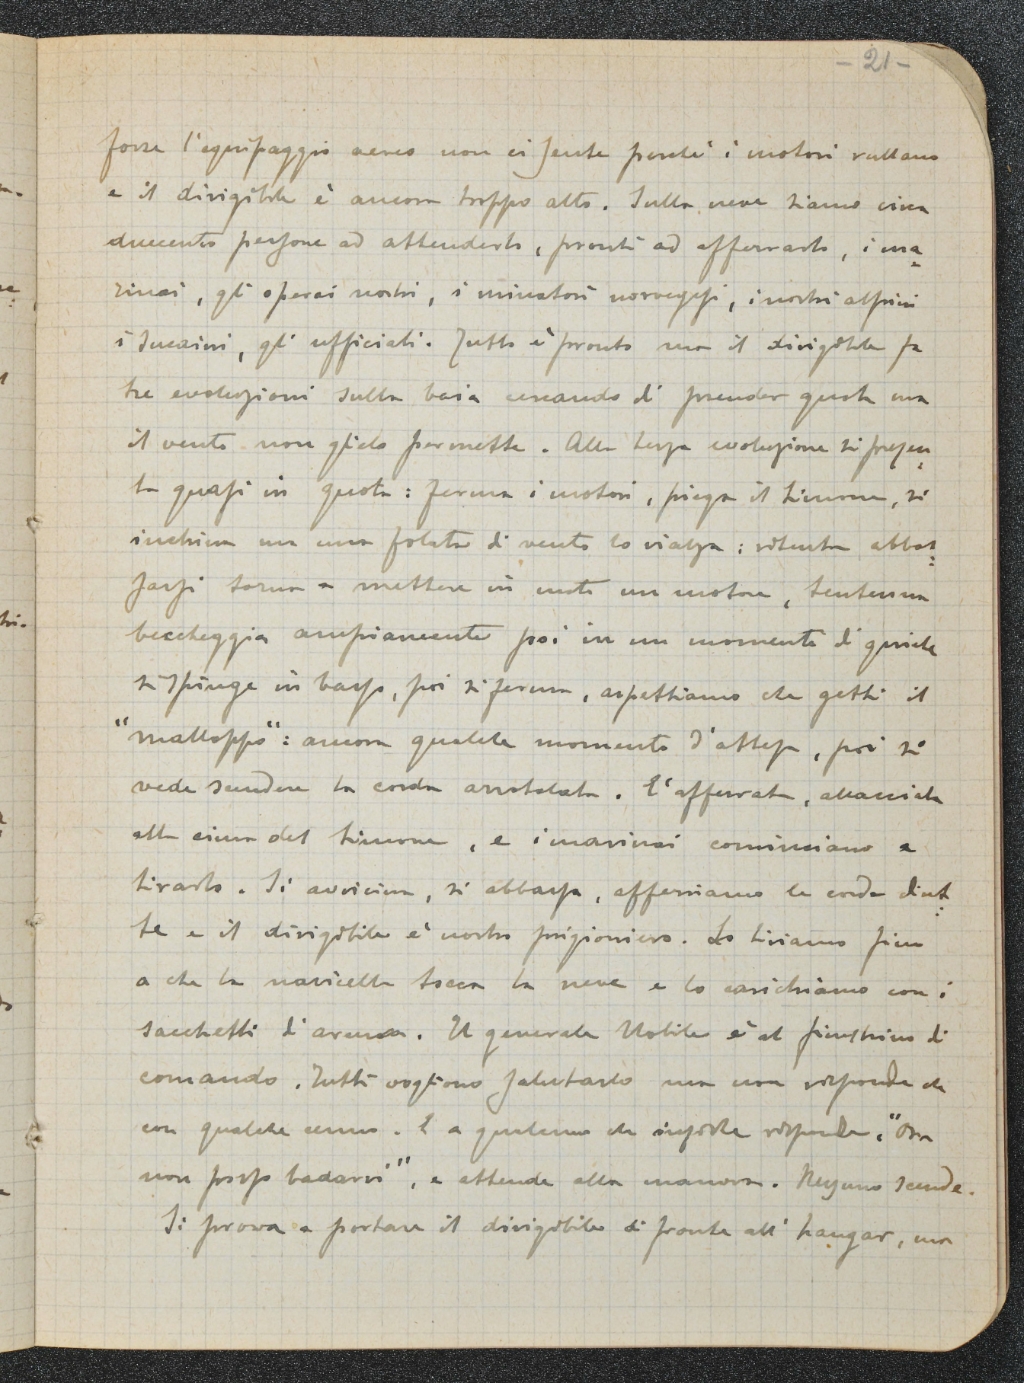 - 21 -
forse l'equipaggio aereo non ci sente perchè i motori rullano
e il dirigibile è ancora troppo alto. Sulla neve siamo circa
duecento persone ad attenderlo, pronti ad afferrarlo, i ma=
rinai, gli operai nostri, i minatori norvegesi, i nostri alpini
i Sucaini, gli ufficiali. Tutto è pronto ma il dirigibile fa
tre evoluzioni sulla baia cercando di prender quota ma
il vento non glielo permette. Alla terza evoluzione si presen=
ta quasi in quota: ferma i motori, piega il timone, si
inchina ma una folata di vento lo rialza: ritenta abbas=
sarsi torna a mettere in moto un motore, tentenna
beccheggia ampiamente poi in un momento di quiete
si spinge in basso, poi si ferma, aspettiamo che getti il
"malloppo": ancora qualche momento d'attesa, poi si
vede scendere la corda arrotolata. È afferrata, allacciata
alla cima del timone, e i marinai cominciano a
tirarlo. Si avvicina, si abbassa, afferriamo le corde
te e il dirigibile è nostro prigioniero. Lo tiriamo fino
a che la navicella tocca la neve e lo carichiamo con i
sacchetti d'arena. Il generale Nobile è al finestrino di
comando. Tutti vogliono salutarlo ma non risponde che
con qualche cenno. E a qualcuno che insiste risponde: "Ora
non posso badarvi", e attende alla manovra. Nessuno scende.
Si prova a portare il dirigibile di fronte all'hangar, ma